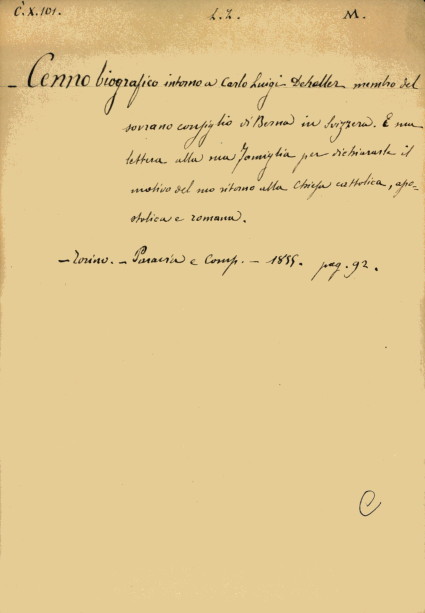 C.X.101. L.L. M.
– Cenno biografico intorno a Carlo Luigi Dehaller membro del
sovrano consiglio di Berna in Svizzera. E sua
lettera alla sua famiglia per dichiararle il
motivo del suo ritorno alla Chiesa cattolica, apo-
stolica e romana.
– Torino. – Paravia e Comp. – 1855. pag. 92.
C